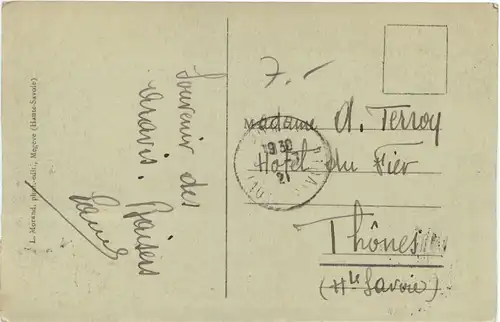 L. Morand, phot.-édit., Megève (Haute-Savoie)
Souvenir des
Aravis. Baisers
7.-
Madame A. Terroy
Hôtel du Fier
Thônes
(Hte Savoie)
1930